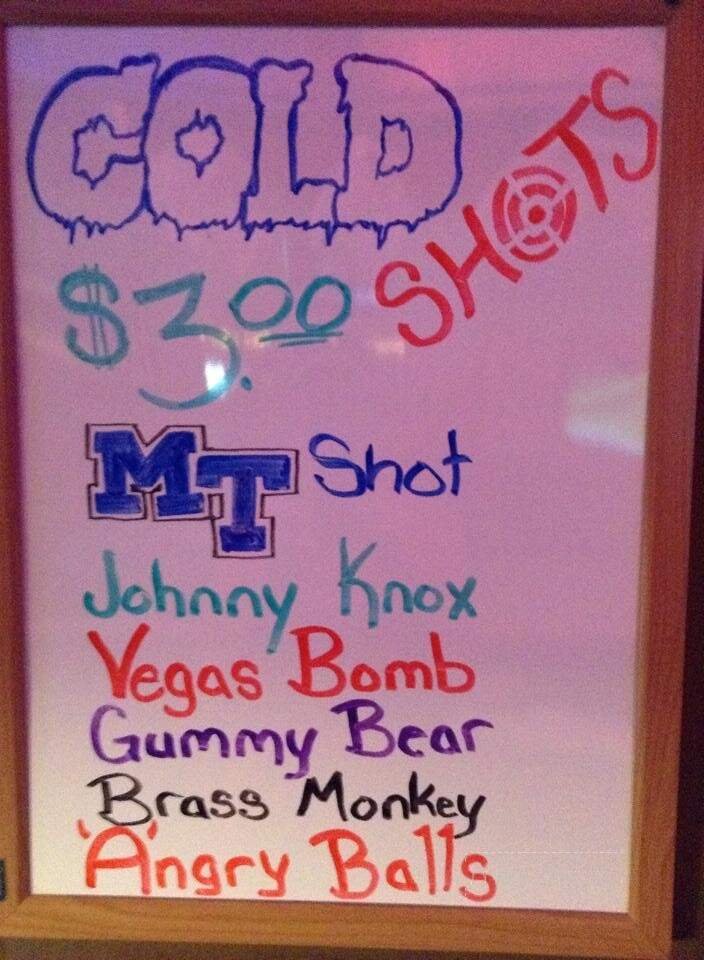 COLD
SHOTS
$3.00
MT Shot
Johnny Knox
Vegas Bomb
Gummy Bear
Brass Monkey
'A'ngry Balls